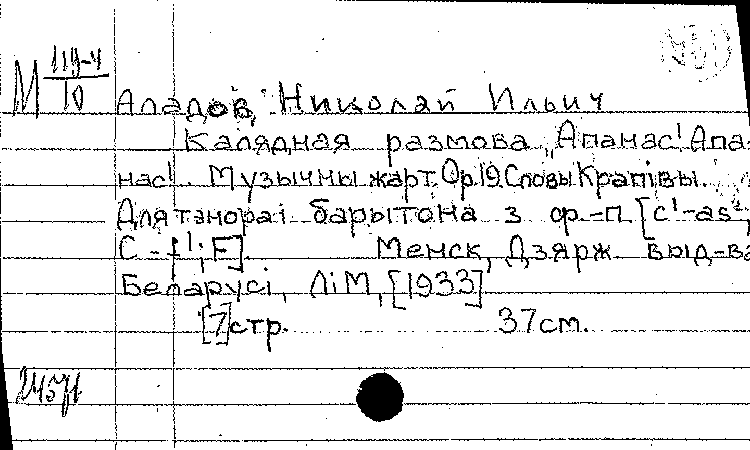 М 119-4
10
Аладов, Николай Ильич
Калядная размова „Апанас! Апа-
нас!". Музычны жарт. Ор 19. Словы Крапівы.
Для танора і барытона з ф.-п. [c¹-as²,
C-f¹; F]. Менск, Дзярж. выд-ва
Беларусі, ЛіМ, [1933]
[7] стр. 37 см.